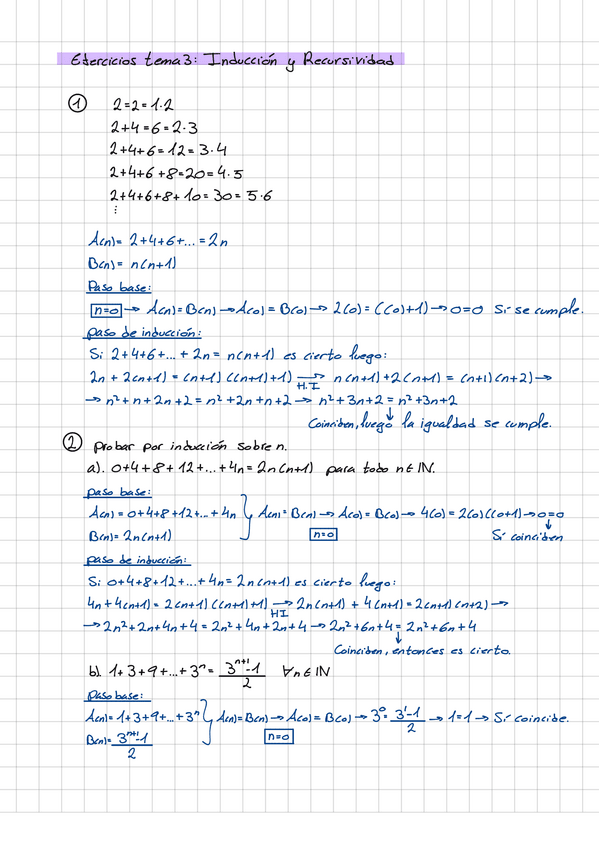 Ejercicios tema 3: Inducción y Recursividad
① 2=2=1·2
2+4=6=2·3
2+4+6=12=3·4
2+4+6+8=20=4·5
2+4+6+8+10=30=5·6
⋮
A(n)= 2+4+6+...=2n
B(n)= n(n+1)
Paso base:
n=0 → A(n)=B(n) → A(0)=B(0) → 2(0)=((0)+1) → 0=0 Sí se cumple.
paso de inducción:
Si 2+4+6+...+2n= n(n+1) es cierto luego:
2n + 2(n+1) = (n+1)((n+1)+1) → H.I n(n+1)+2(n+1) = (n+1)(n+2) →
→ n²+n+2n+2 = n²+2n+n+2 → n²+3n+2 = n²+3n+2
Coinciden, luego la igualdad se cumple.
② probar por inducción sobre n.
a). 0+4+8+12+...+4n=2n(n+1) para todo n∈IN.
paso base:
A(n)=0+4+8+12+...+4n } A(n)=B(n) → A(0)=B(0) → 4(0)=2(0)((0+1) → 0=0
B(n)=2n(n+1) n=0 Sí coinciden
paso de inducción:
Si 0+4+8+12+...+4n=2n(n+1) es cierto luego:
4n+4(n+1)=2(n+1)((n+1)+1) → HI 2n(n+1)+4(n+1)=2(n+1)(n+2) →
→ 2n²+2n+4n+4=2n²+4n+2n+4 → 2n²+6n+4=2n²+6n+4
Coinciden, entonces es cierto.
b). 1+3+9+...+3ⁿ = 3ⁿ⁺¹-1/2 ∀n∈IN
paso base:
A(n)=1+3+9+...+3ⁿ } A(n)=B(n) → A(0)=B(0) → 3⁰=3¹-1/2 → 1=1 → Sí coincide.
B(n)=3ⁿ⁺¹-1/2 n=0